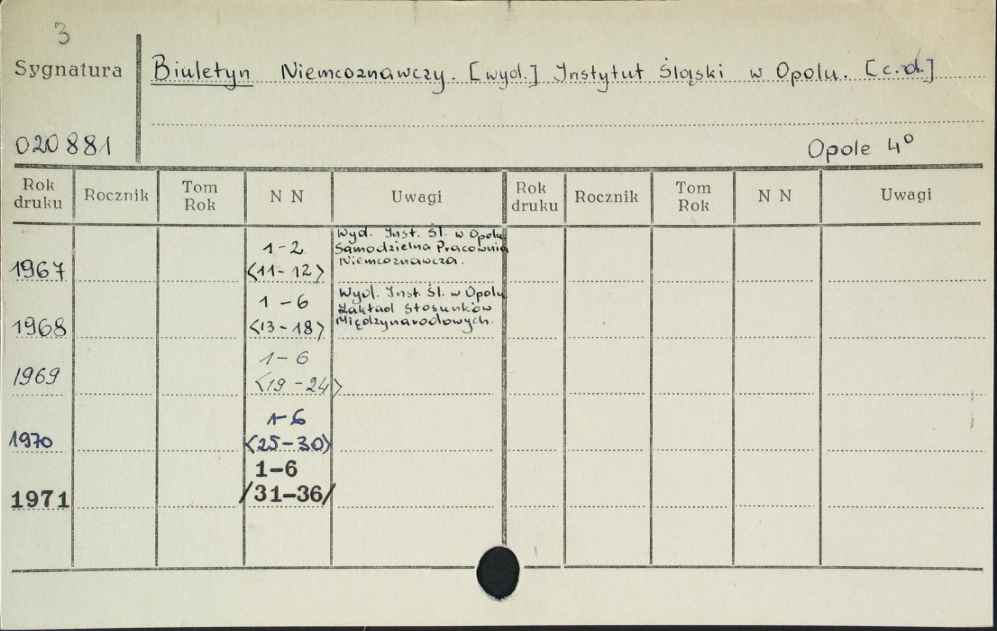 3
Sygnatura
Biuletyn Niemcoznawczy. [wyd.] Instytut Śląski w Opolu. [c.d.]
020881
Opole 4°
Rok druku Rocznik Tom Rok N N Uwagi Rok druku Rocznik Tom Rok N N Uwagi
1967 1-2 <11-12> Wyd. Inst. Śl. w Opolu Samodzielna Pracownia Niemcoznawcza.
1968 1-6 <13-18> Wyd. Inst. Śl. w Opolu Zakład Stosunków Międzynarodowych.
1969 1-6 <19-24>
1970 1-6 <25-30>
1971 1-6 /31-36/